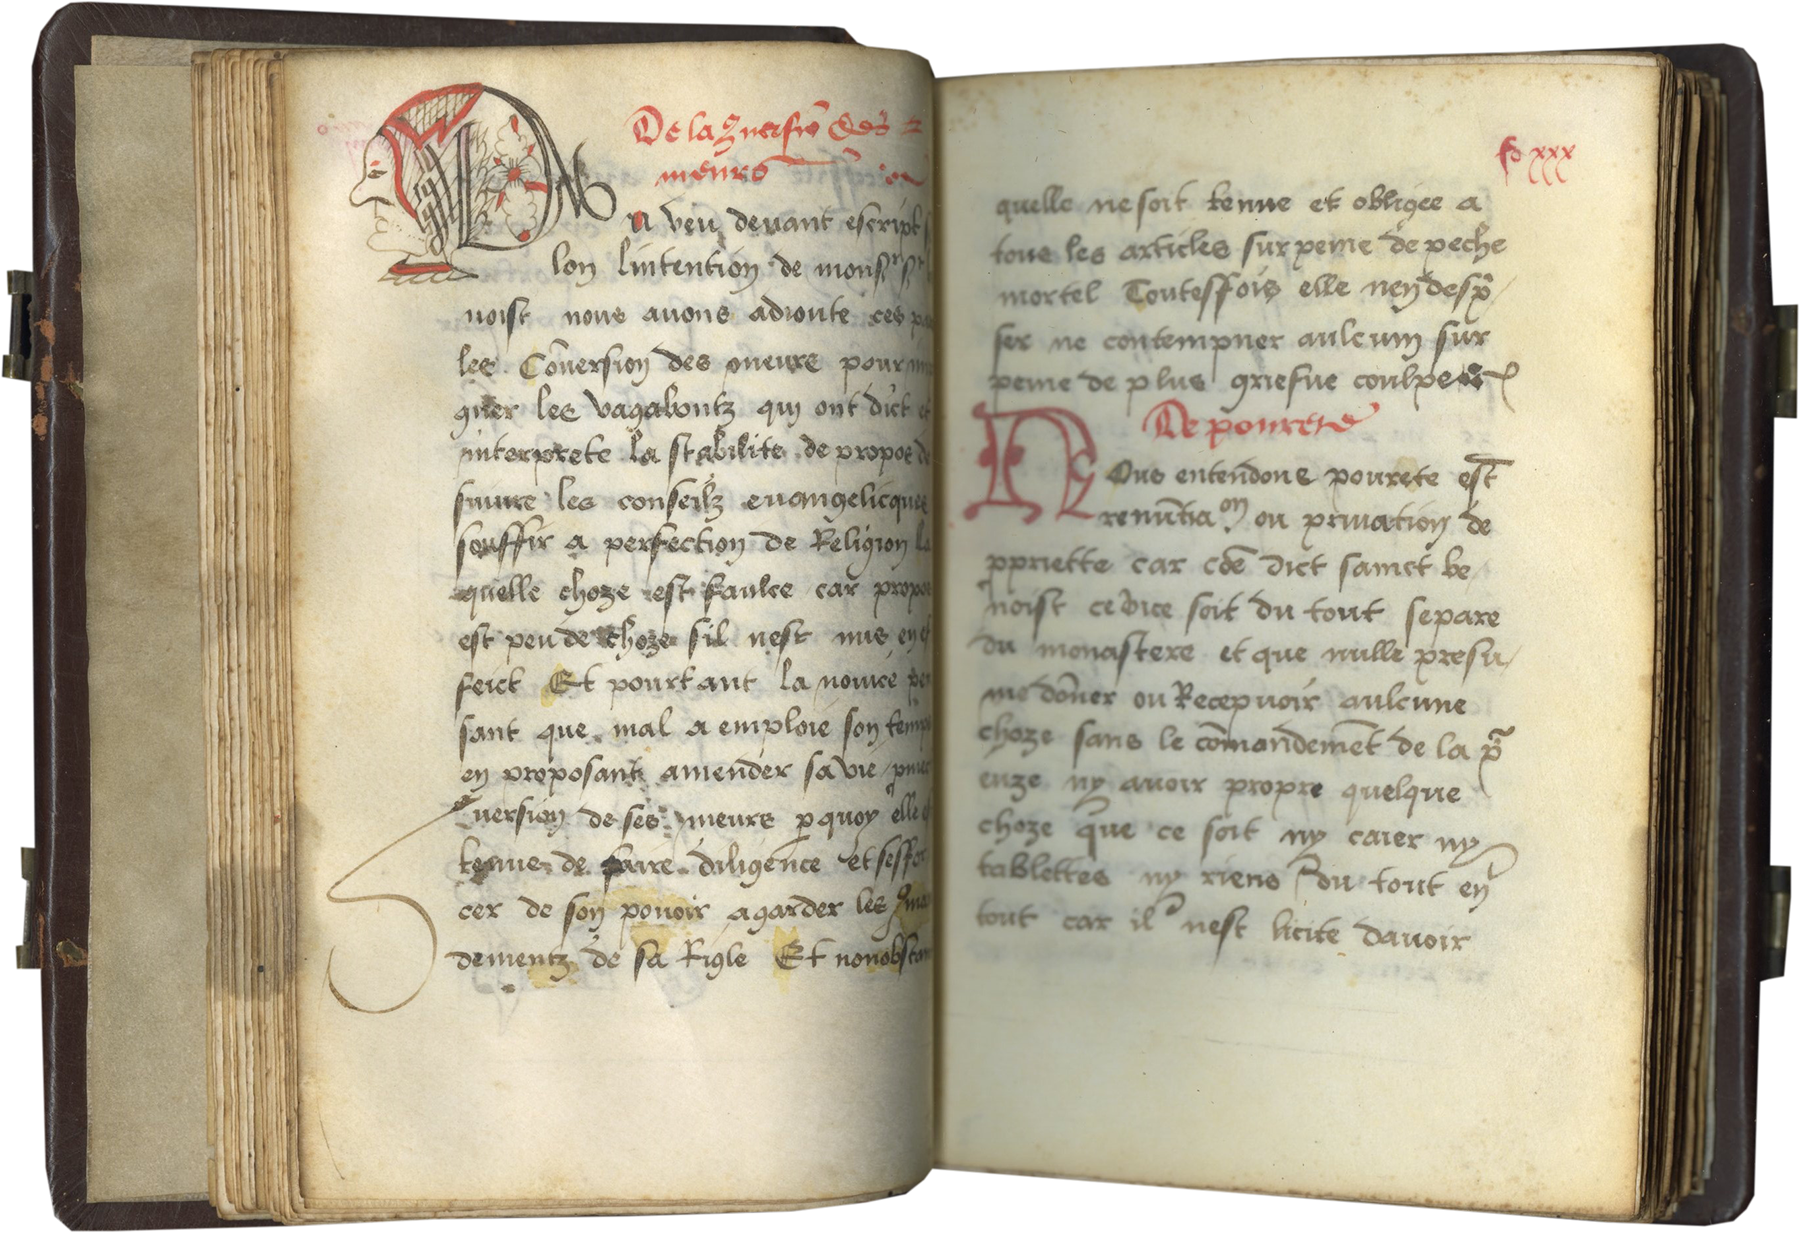 De la ꝯuersiō des
meurs
u veu devant escript s
lon lintention de monsr sr
noist nous auons adioute ces
les Cōuersion des meurs pour
guer les vagabontz qui ont dict et
interprete la stabilite de propos de
suiure les conseilz euangelicques
souffir a perfection de Religion la
quelle choze est faulce car propos
est peu de choze sil nest mis en ef
feict Et pourtant la nouice pen
sant que mal a emploie son temps
en proposant amender sa vie
ꝯuersion de ses meurs ꝑquoy elle
tenue de faire diligence et seffor
cer de son pouoir a garder les ꝯman
dementz de sa Rigle Et nonobstan
fo xxx
quelle ne soit tenue et obligee a
tous les articles sur peine de peche
mortel Toutesffois elle nen despr̄
ser ne contempner aulcun sur
peine de plus griefue coulpe
De pourete
NOus entendons pourete est
renūtiaon ou priuation de
ꝓpriette car cōe dict sainct be
noist ce vice soit du tout separe
du monastere et que nulle presu
me dōner ou Recepuoir aulcune
choze sans le cōmandemēt de la pr̄
euze ny auoir propre quelque
choze que ce soit ny caier ny
tablettes ny riens du tout en
tout car il nest licite dauoir